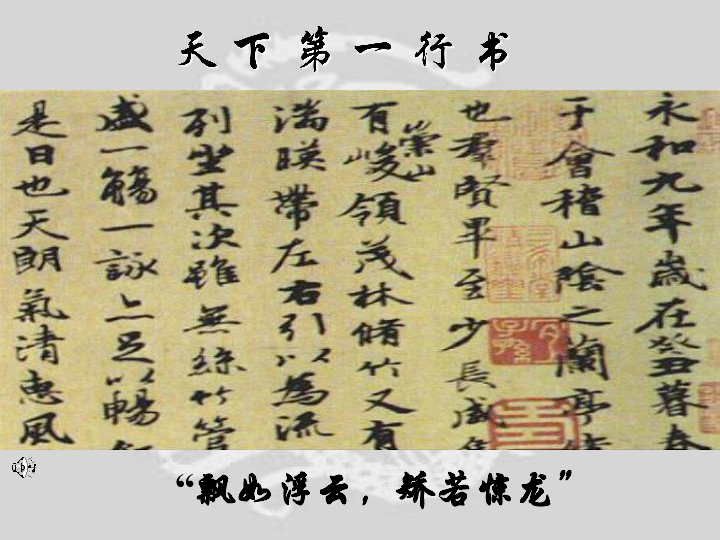 天下第一行书
永和九年歲在癸丑暮春
于會稽山陰之蘭亭
也羣賢畢至少長咸
有崇山峻領茂林脩竹又有
湍暎帶左右引以為流
列坐其次雖無絲竹管
盛一觴一詠上足以暢
是日也天朗氣清惠風
“飘如浮云，矫若惊龙”